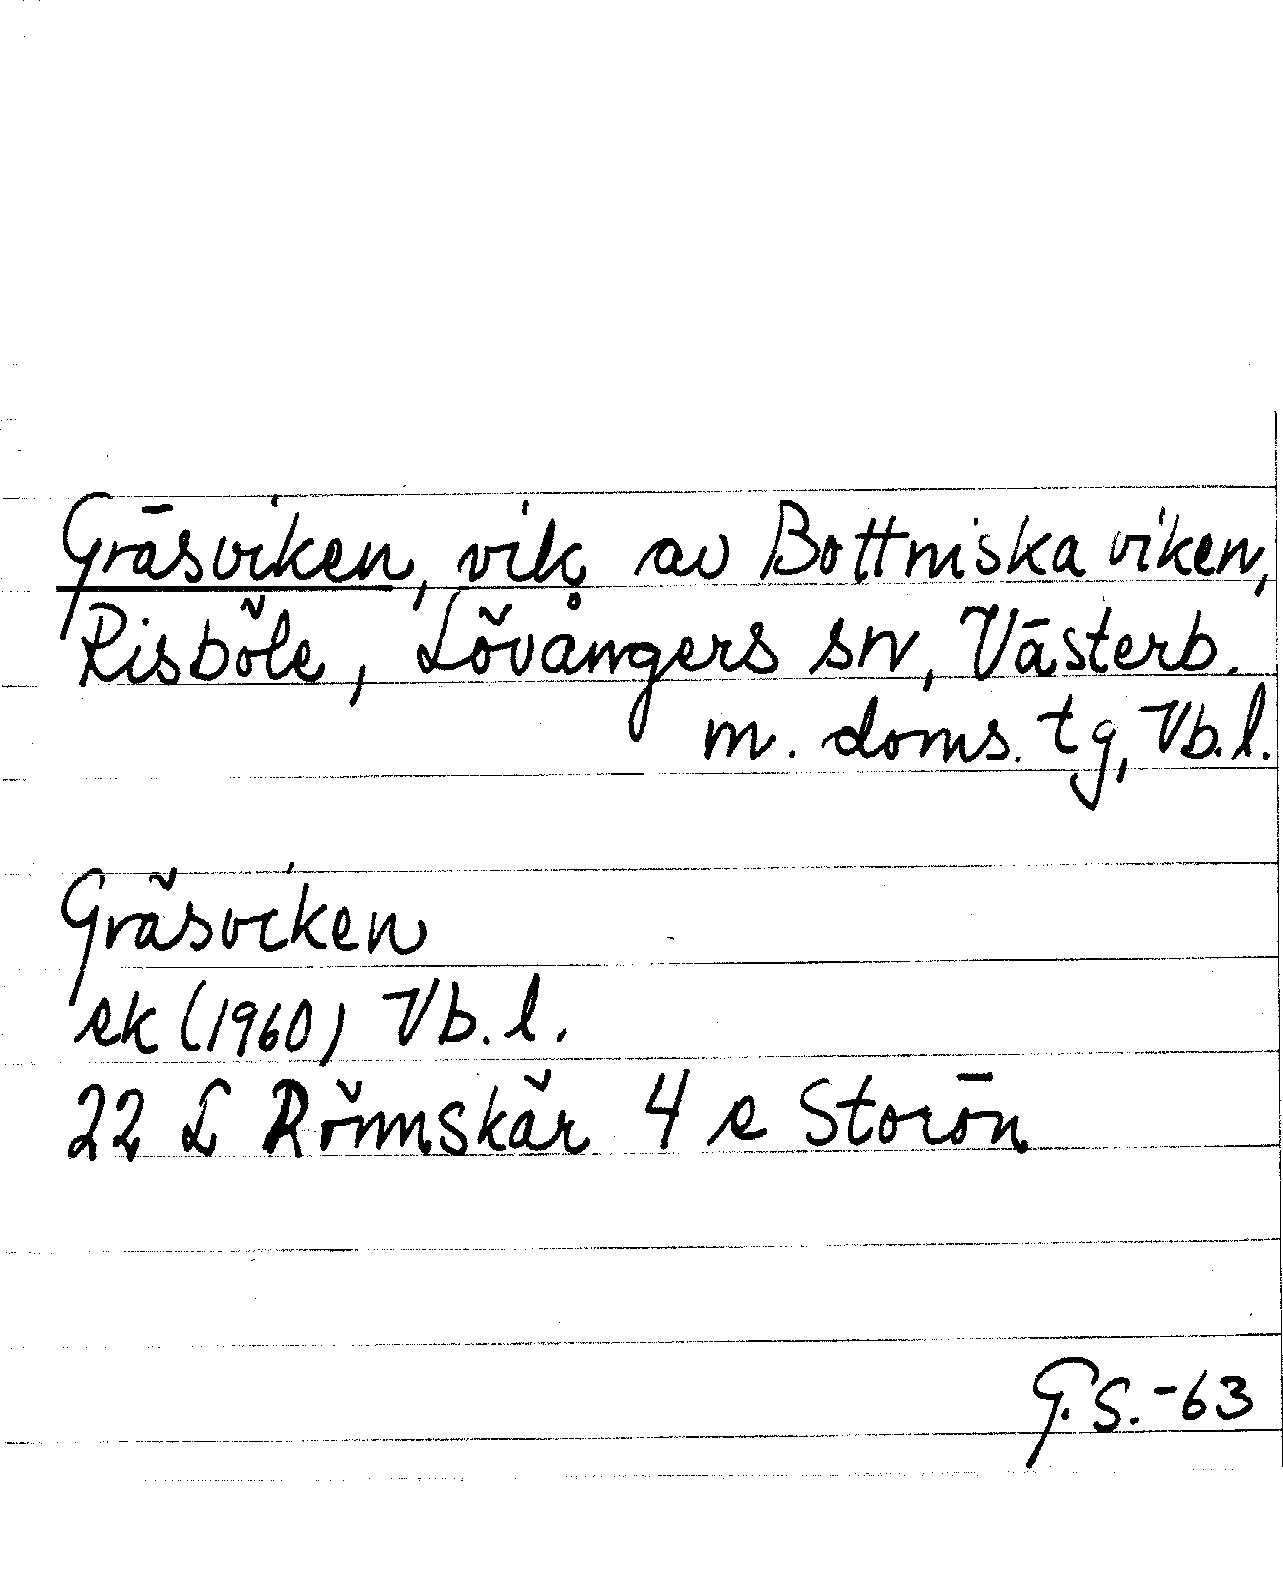 Gräsviken, vik av Bottniska viken,
Risböle, Lövångers sn, Västerb.
m. doms. tg, Vb. l.
Gräsviken
ek (1960) Vb. l.
22 L Rönnskär 4 e Storön
G. S. -63